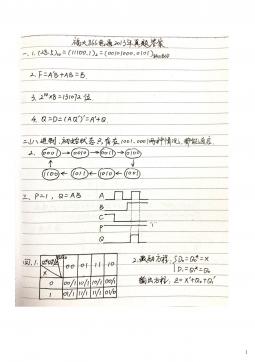 福大866电路2013年真题答案
一、1. (28.5)₁₀ = (11100.1)₂ = (00101000.0101)8421BCD
2. F = A'B + AB = B
3. 2¹⁴ × 8 = 131072 位
4. Q = D = (AQ')' = A' + Q
二、1. 八进制, 初始状态只存在1001, 0001两种情况, 都能
2. 0001 → 0010 → 0011 → 0100
1100 ← 1011 ← 1010 ←
三、P=1, Q=AB
A
B
C
P "1"
Q
四、1.
X
00 01 11 10
0 00/1 10/1 10/1 00/1
1 01/1 11/1 11/1 01/0
2. 激励方程: D₀ = X
D₁ = Q₀
输出方程: Z = X' + Q₀ + Q₁'
1